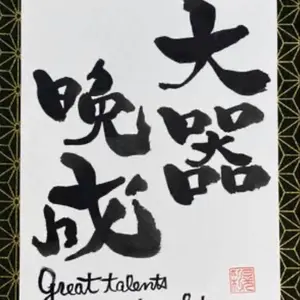 大器
晩成
Great talents